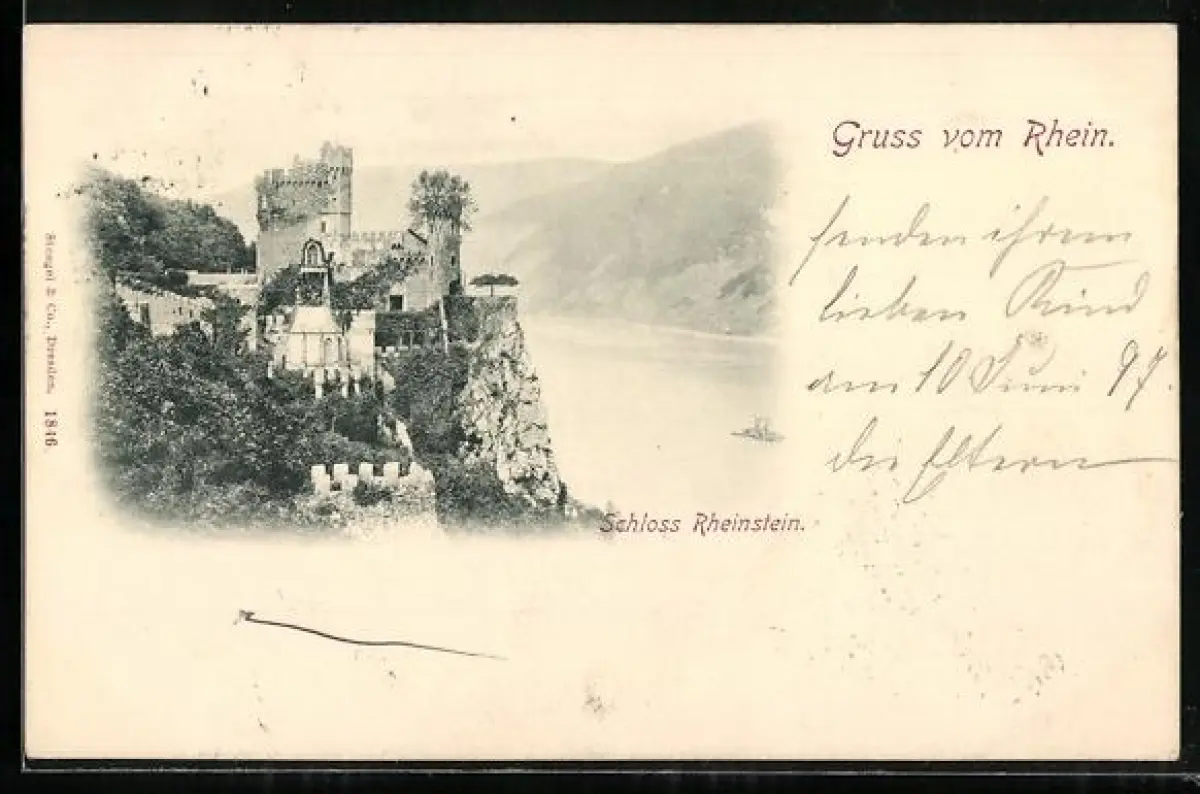 Gruss vom Rhein.
senden ihrem
lieben Kind
am 10 Juni 97.
die Eltern
Schloss Rheinstein.
Stengel & Co., Dresden. 1846.